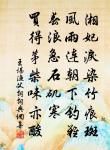 湘妃淚染竹痕斑
風雨連朝下釣難
春浪急石磯寒
買得茅柴味亦酸
王諶漁父詞詞典網